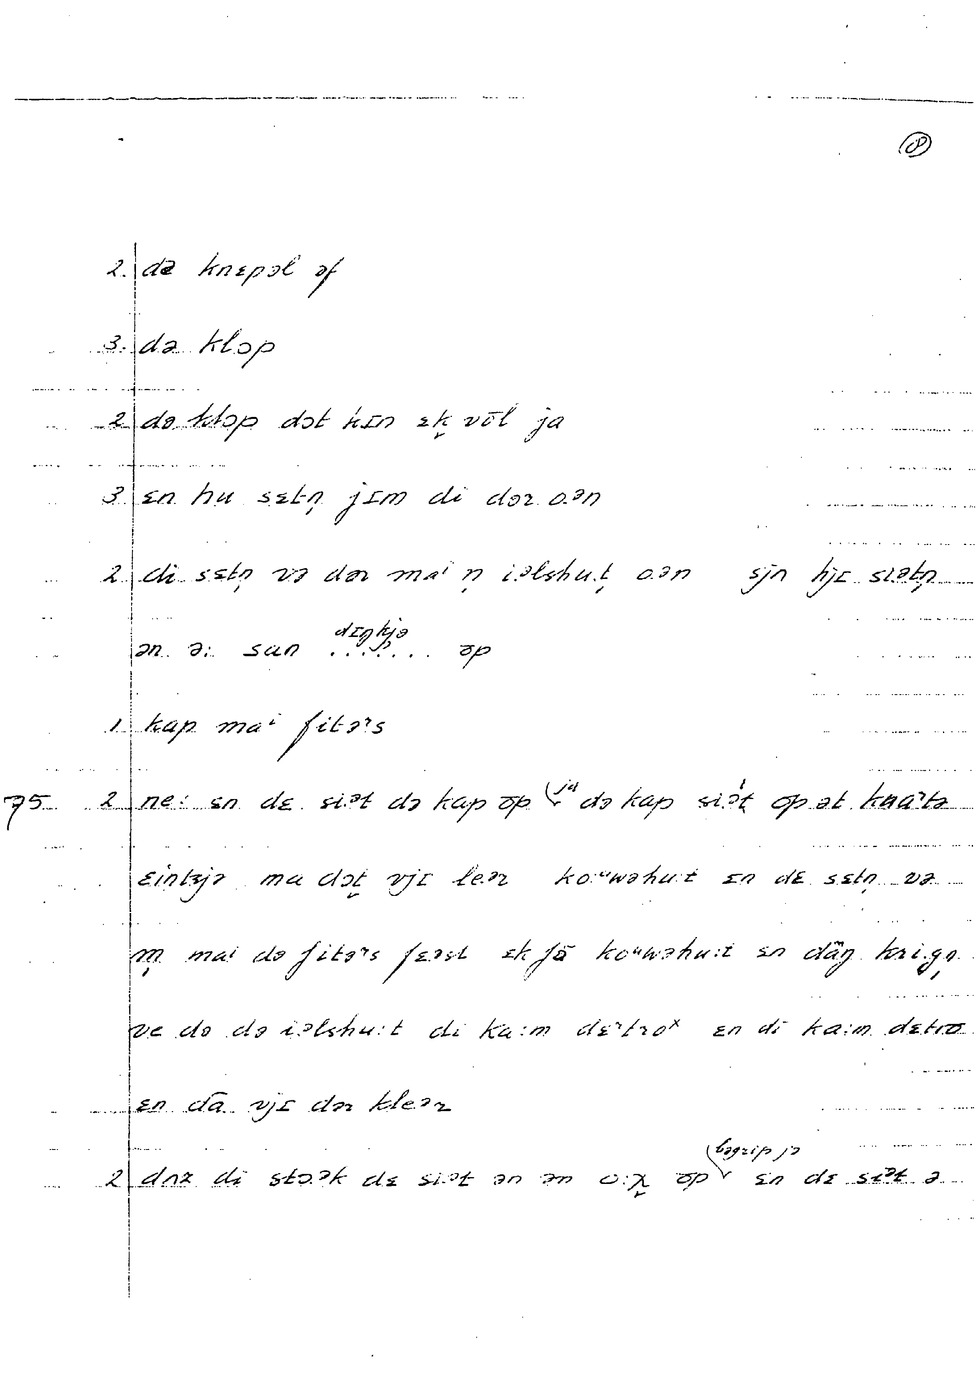 8
2. də knɛpəl əf
3. də klɔp
2 də klɔp dɔt kɪn ɛk vōl ja
3 ɛn hu sɛtn̩ jɪm di dər ɔən
2 di sɛtn̩ və dər maⁱ n̩ iəlshu.t ɔən sjn hjɪ siətn̩
dɪŋkjə
ən ə: sun ....... ɔp
1 kap maⁱ fitəʳs
75 2 ne: ɛn dɛ siət də kap ɔp ja də kap siət ɔp ət kuaʳtə
ɛintʒjə ma dɔt vjɪ leər koᵘwəhu:t ɪn dɛ sɛtn̩ və
m̩ maⁱ də fitəʳs fɛəst ɛk fɔ̄ koᵘwəhu:t ɛn dāŋ kri.gn̩
ve də də iəlshu:t di ka:m dɛʳtroˣ ɛn di ka:m dɛtrɔ
ɛn dā vjɪ dər kleər
bəgrip jə
2 dnz di stɔək dɛ siət ən əm ɔ:χ ɔp ɛn dɛ siət ə